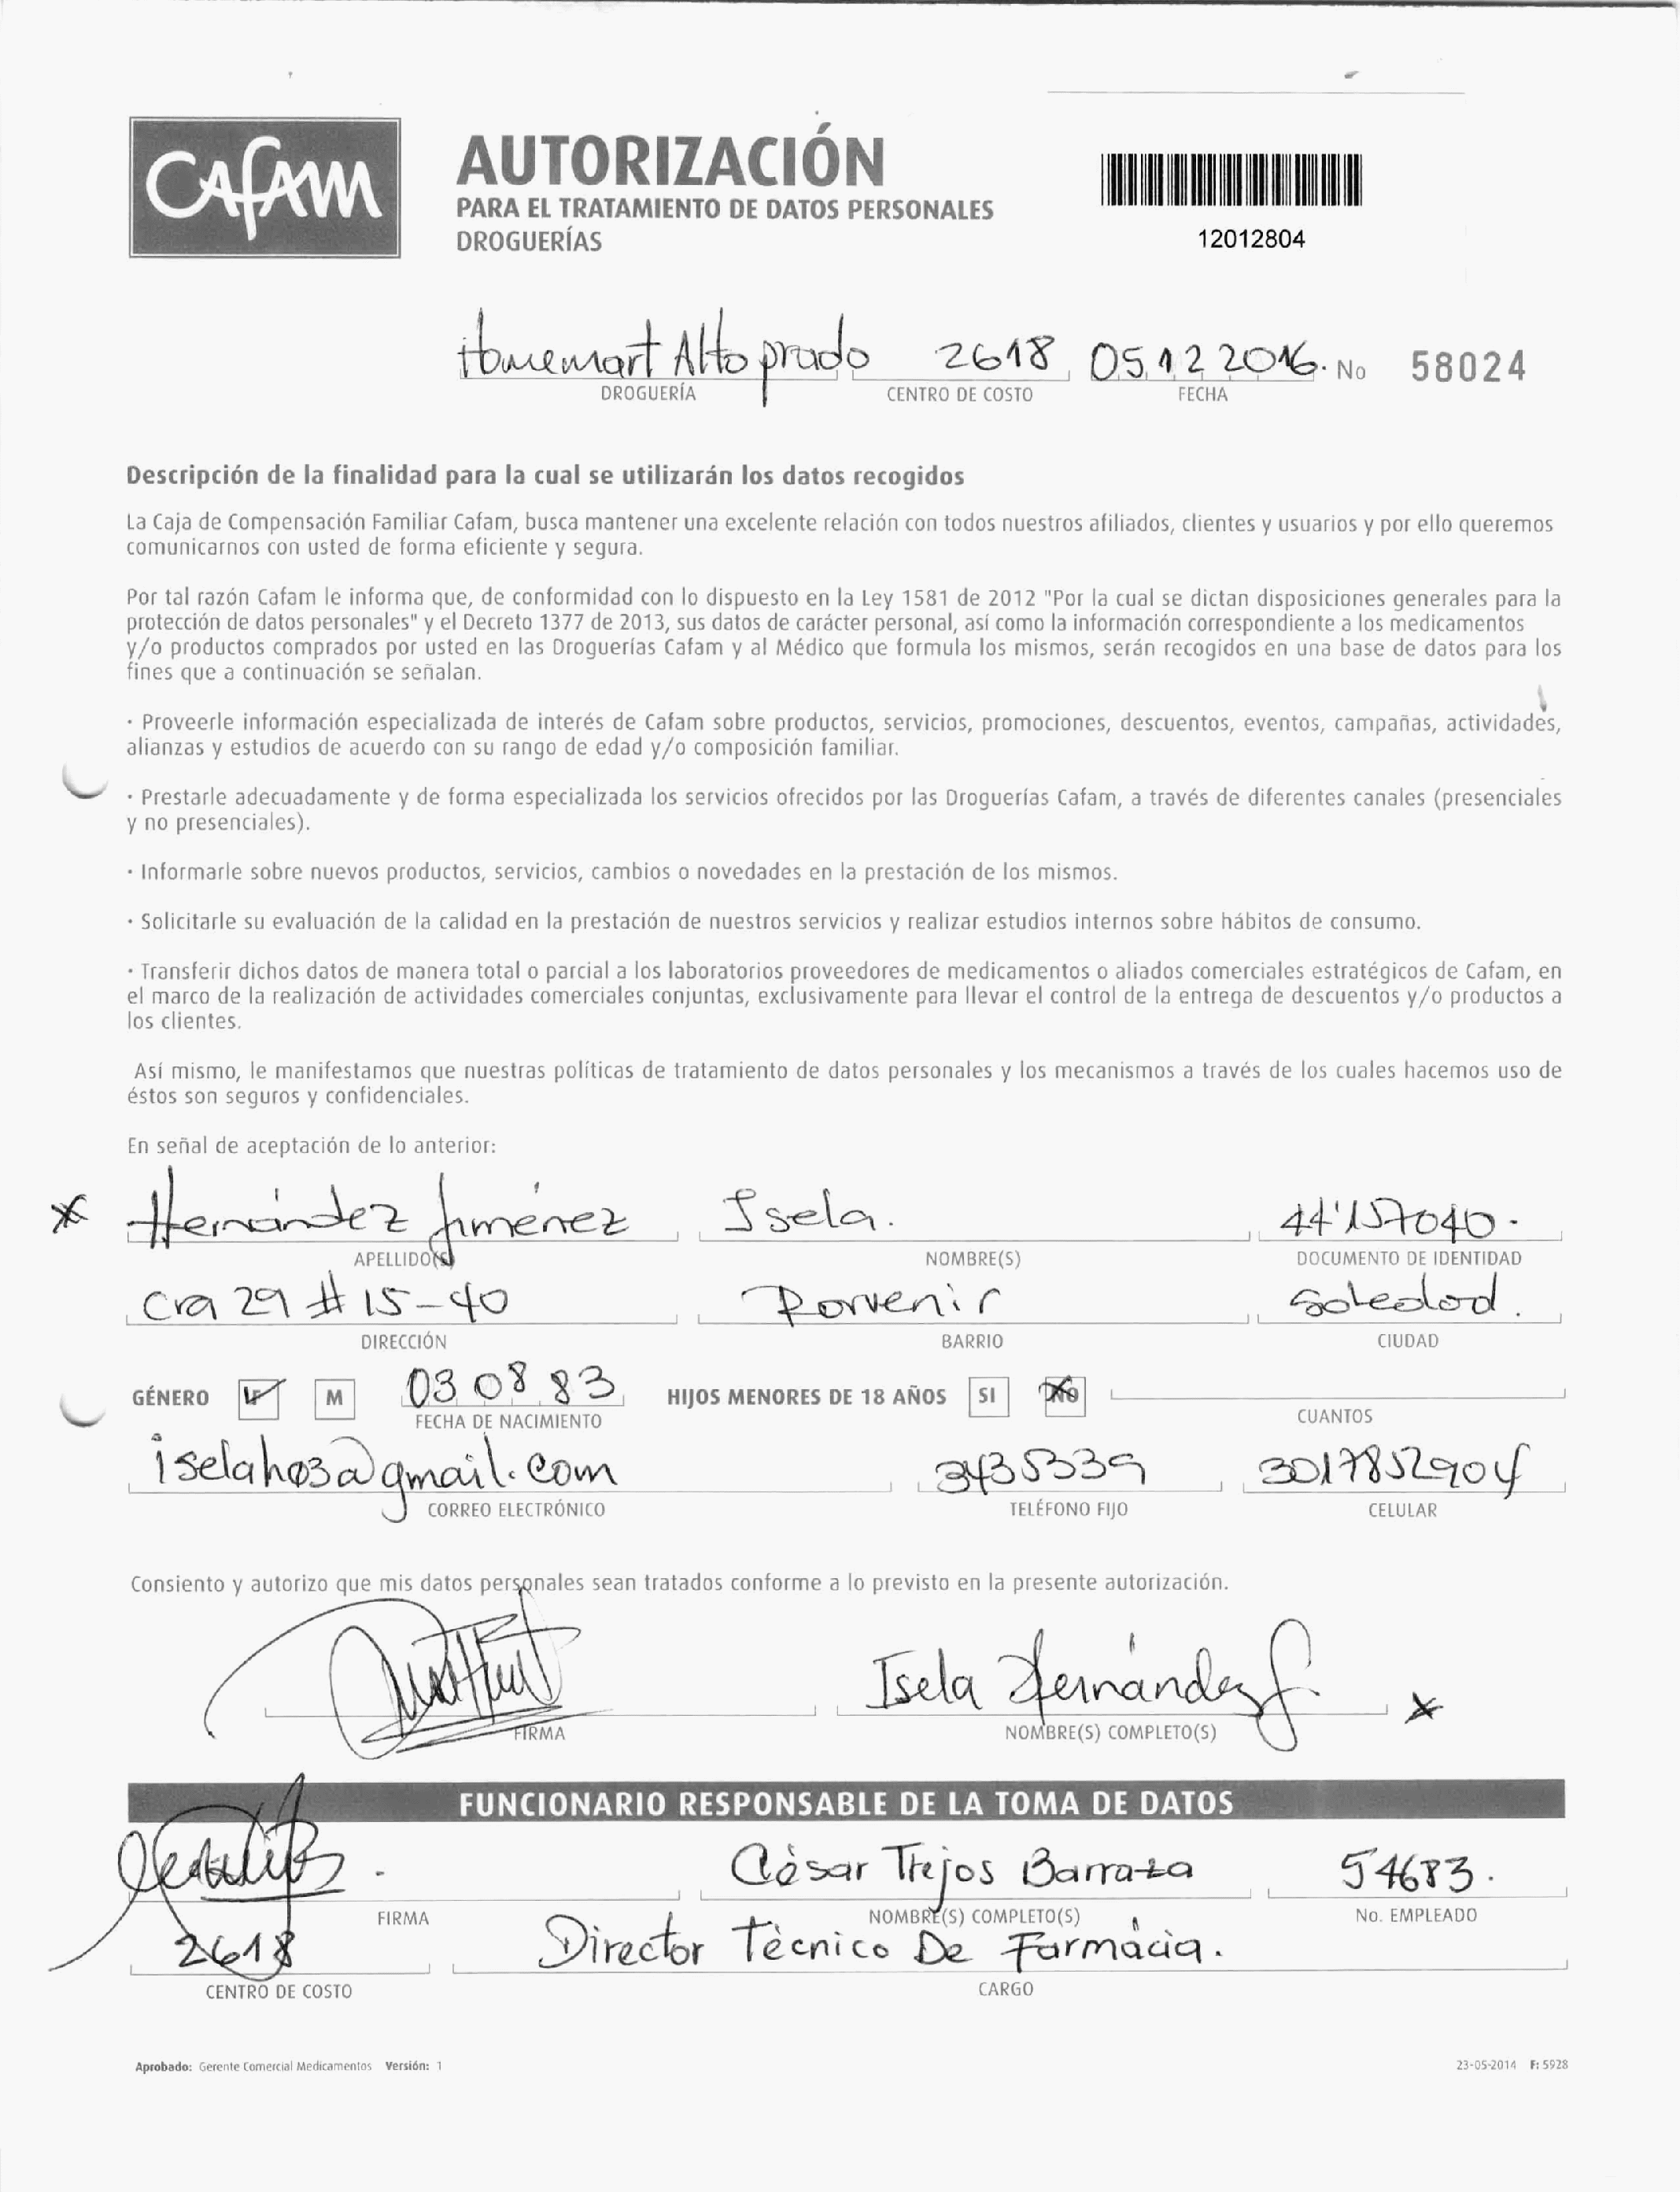 CAFAM
AUTORIZACIÓN
PARA EL TRATAMIENTO DE DATOS PERSONALES
DROGUERÍAS
12012804
Homemart Alto prado 2618 05 12 2016. No 58024
DROGUERÍA CENTRO DE COSTO FECHA
Descripción de la finalidad para la cual se utilizarán los datos recogidos
La Caja de Compensación Familiar Cafam, busca mantener una excelente relación con todos nuestros afiliados, clientes y usuarios y por ello queremos
comunicarnos con usted de forma eficiente y segura.
Por tal razón Cafam le informa que, de conformidad con lo dispuesto en la Ley 1581 de 2012 "Por la cual se dictan disposiciones generales para la
protección de datos personales" y el Decreto 1377 de 2013, sus datos de carácter personal, así como la información correspondiente a los medicamentos
y/o productos comprados por usted en las Droguerías Cafam y al Médico que formula los mismos, serán recogidos en una base de datos para los
fines que a continuación se señalan.
· Proveerle información especializada de interés de Cafam sobre productos, servicios, promociones, descuentos, eventos, campañas, actividades,
alianzas y estudios de acuerdo con su rango de edad y/o composición familiar.
· Prestarle adecuadamente y de forma especializada los servicios ofrecidos por las Droguerías Cafam, a través de diferentes canales (presenciales
y no presenciales).
· Informarle sobre nuevos productos, servicios, cambios o novedades en la prestación de los mismos.
· Solicitarle su evaluación de la calidad en la prestación de nuestros servicios y realizar estudios internos sobre hábitos de consumo.
· Transferir dichos datos de manera total o parcial a los laboratorios proveedores de medicamentos o aliados comerciales estratégicos de Cafam, en
el marco de la realización de actividades comerciales conjuntas, exclusivamente para llevar el control de la entrega de descuentos y/o productos a
los clientes.
Así mismo, le manifestamos que nuestras políticas de tratamiento de datos personales y los mecanismos a través de los cuales hacemos uso de
éstos son seguros y confidenciales.
En señal de aceptación de lo anterior:
Hernández Jiménez Isela. 44'157040.
APELLIDO(S) NOMBRE(S) DOCUMENTO DE IDENTIDAD
Cra 29 # 15-40 Porvenir Soledad.
DIRECCIÓN BARRIO CIUDAD
GÉNERO F M 03 08 83 HIJOS MENORES DE 18 AÑOS SI NO
FECHA DE NACIMIENTO CUANTOS
iselah03@gmail.com 3435339 3017852904
CORREO ELECTRÓNICO TELÉFONO FIJO CELULAR
Consiento y autorizo que mis datos personales sean tratados conforme a lo previsto en la presente autorización.
Isela Hernández J.
FIRMA NOMBRE(S) COMPLETO(S)
FUNCIONARIO RESPONSABLE DE LA TOMA DE DATOS
César Trejos Barraza 54683.
FIRMA NOMBRE(S) COMPLETO(S) No. EMPLEADO
2618 Director Técnico De Farmácia.
CENTRO DE COSTO CARGO
Aprobado: Gerente Comercial Medicamentos Versión: 1 23-05-2014 F: 5928